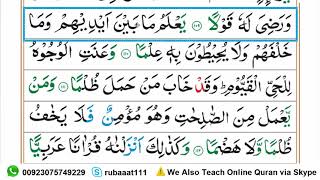 وَرَضِیَ لَهٗ قَوْلًا ﴿۱۰۹﴾ یَعْلَمُ مَا بَیْنَ اَیْدِیْهِمْ وَمَا
خَلْفَهُمْ وَلَا یُحِیْطُوْنَ بِهٖ عِلْمًا ﴿۱۱۰﴾ وَعَنَتِ الْوُجُوْهُ
لِلْحَیِّ الْقَیُّوْمِ ؕ وَقَدْ خَابَ مَنْ حَمَلَ ظُلْمًا ﴿۱۱۱﴾ وَمَنْ
یَّعْمَلْ مِنَ الصّٰلِحٰتِ وَهُوَ مُؤْمِنٌ فَلَا یَخٰفُ
ظُلْمًا وَّلَا هَضْمًا ﴿۱۱۲﴾ وَكَذٰلِكَ اَنْزَلْنٰهُ قُرْاٰنًا عَرَبِیًّا
00923075749229 rubaaat111 We Also Teach Online Quran via Skype